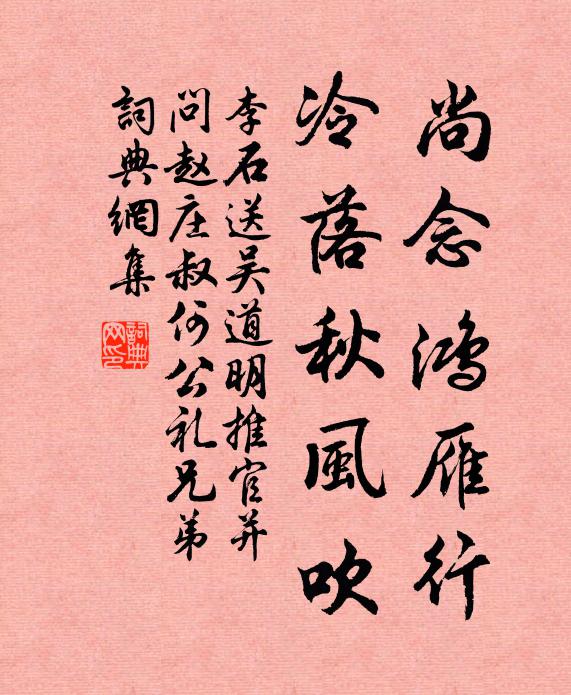 尚念鴻雁行
冷落秋風吹
李石送吴道明推官并
问赵庄叔何公礼兄弟
詞典網集
詞典網印